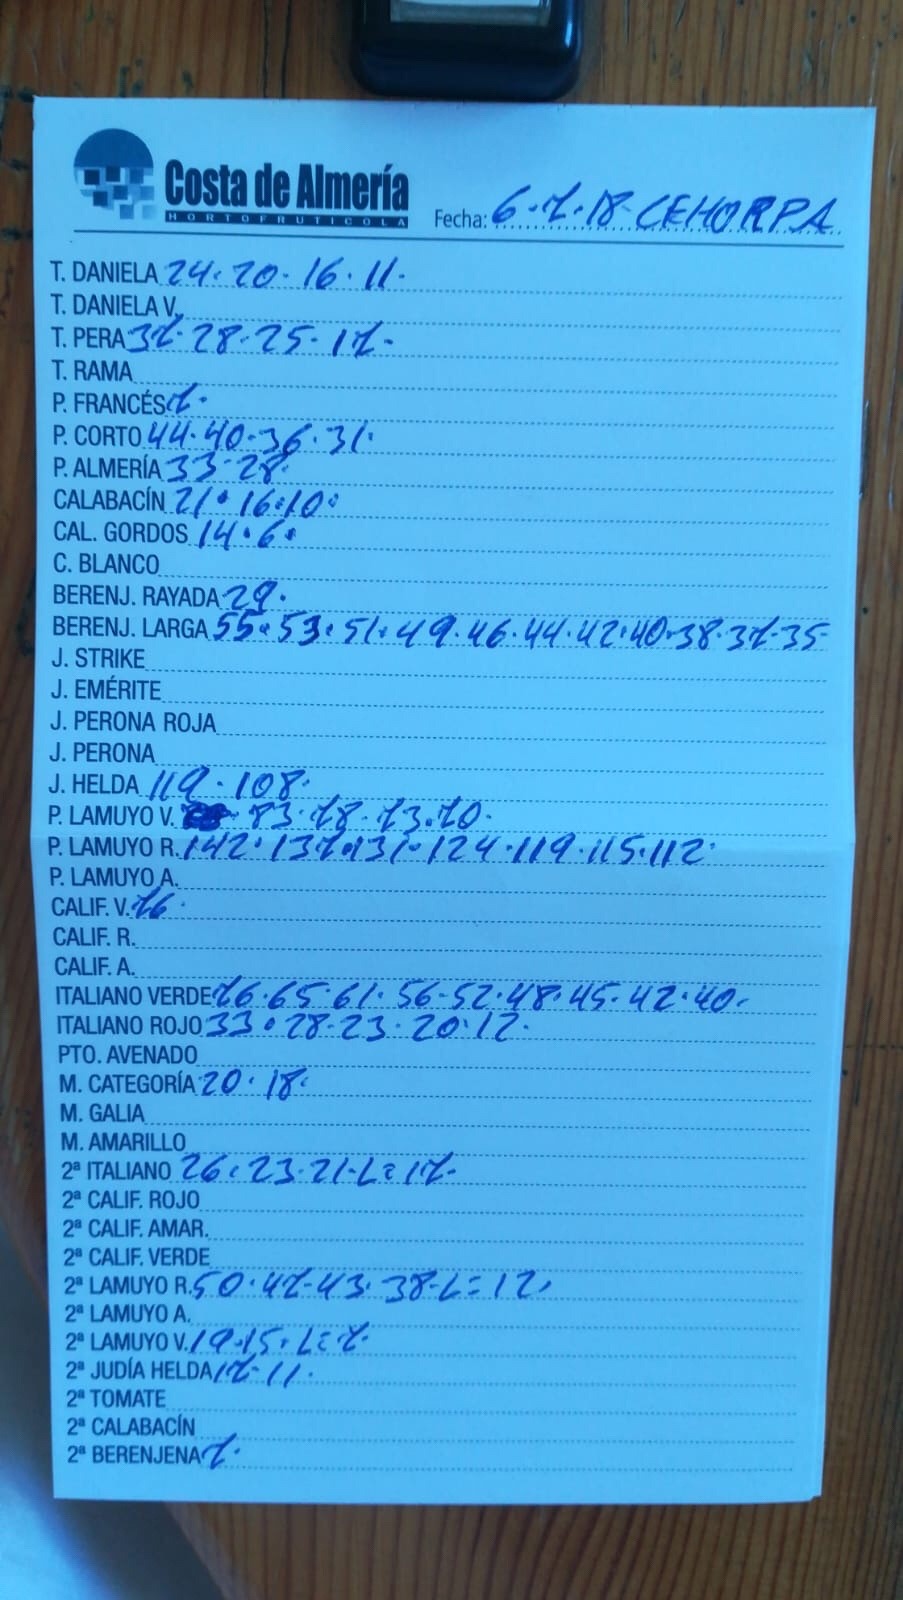 Costa de Almería
HORTOFRUTICOLA
Fecha: 6.7.18- CEHORPA
T. DANIELA 24. 20. 16. 11.
T. DANIELA V.
T. PERA 37. 28. 25. 17.
T. RAMA
P. FRANCÉS 7.
P. CORTO 44. 40. 36. 31.
P. ALMERÍA 33. 28.
CALABACÍN 21. 16. 10.
CAL. GORDOS 14. 6.
C. BLANCO
BERENJ. RAYADA 29.
BERENJ. LARGA 55. 53. 51. 49. 46. 44. 42. 40. 38. 37. 35
J. STRIKE
J. EMÉRITE
J. PERONA ROJA
J. PERONA
J. HELDA 119. 108.
P. LAMUYO V. 83. 78. 73. 70.
P. LAMUYO R. 142. 137. 131. 124. 119. 115. 112.
P. LAMUYO A.
CALIF. V. 76.
CALIF. R.
CALIF. A.
ITALIANO VERDE 76. 65. 61. 56. 52. 48. 45. 42. 40.
ITALIANO ROJO 33. 28. 23. 20. 12.
PTO. AVENADO
M. CATEGORÍA 20. 18.
M. GALIA
M. AMARILLO
2ª ITALIANO 26. 23. 21. L= 17.
2ª CALIF. ROJO
2ª CALIF. AMAR.
2ª CALIF. VERDE
2ª LAMUYO R. 50. 47. 43. 38. L= 12.
2ª LAMUYO A.
2ª LAMUYO V. 19. 15. L= 7.
2ª JUDÍA HELDA 17. 11.
2ª TOMATE
2ª CALABACÍN
2ª BERENJENA 7.